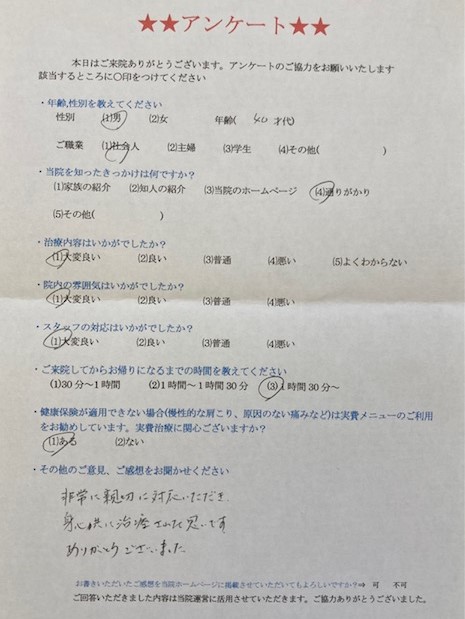 ★★アンケート★★
本日はご来院ありがとうございます。アンケートのご協力をお願いいたします
該当するところに〇印をつけてください
・年齢,性別を教えてください
性別 (1)男 (2)女 年齢( 40 才代)
ご職業 (1)社会人 (2)主婦 (3)学生 (4)その他( )
・当院を知ったきっかけは何ですか？
(1)家族の紹介 (2)知人の紹介 (3)当院のホームページ (4)通りがかり
(5)その他( )
・治療内容はいかがでしたか？
(1)大変良い (2)良い (3)普通 (4)悪い (5)よくわからない
・院内の雰囲気はいかがでしたか？
(1)大変良い (2)良い (3)普通 (4)悪い
・スタッフの対応はいかがでしたか？
(1)大変良い (2)良い (3)普通 (4)悪い
・ご来院してからお帰りになるまでの時間を教えてください
(1)30分～1時間 (2)1時間～1時間30分 (3)1時間30分～
・健康保険が適用できない場合(慢性的な肩こり、原因のない痛みなど)は実費メニューのご利用
をお勧めしています。実費治療に関心ございますか？
(1)ある (2)ない
・その他のご意見、ご感想をお聞かせください
非常に親切に対応いただき
身心共に治療された思いです
ありがとうございました
お書きいただいたご感想を当院ホームページに掲載させていただいてもよろしいですか？⇒ 可 不可
ご回答いただきました内容は当院運営に活用させていただきます。ご協力ありがとうございました。